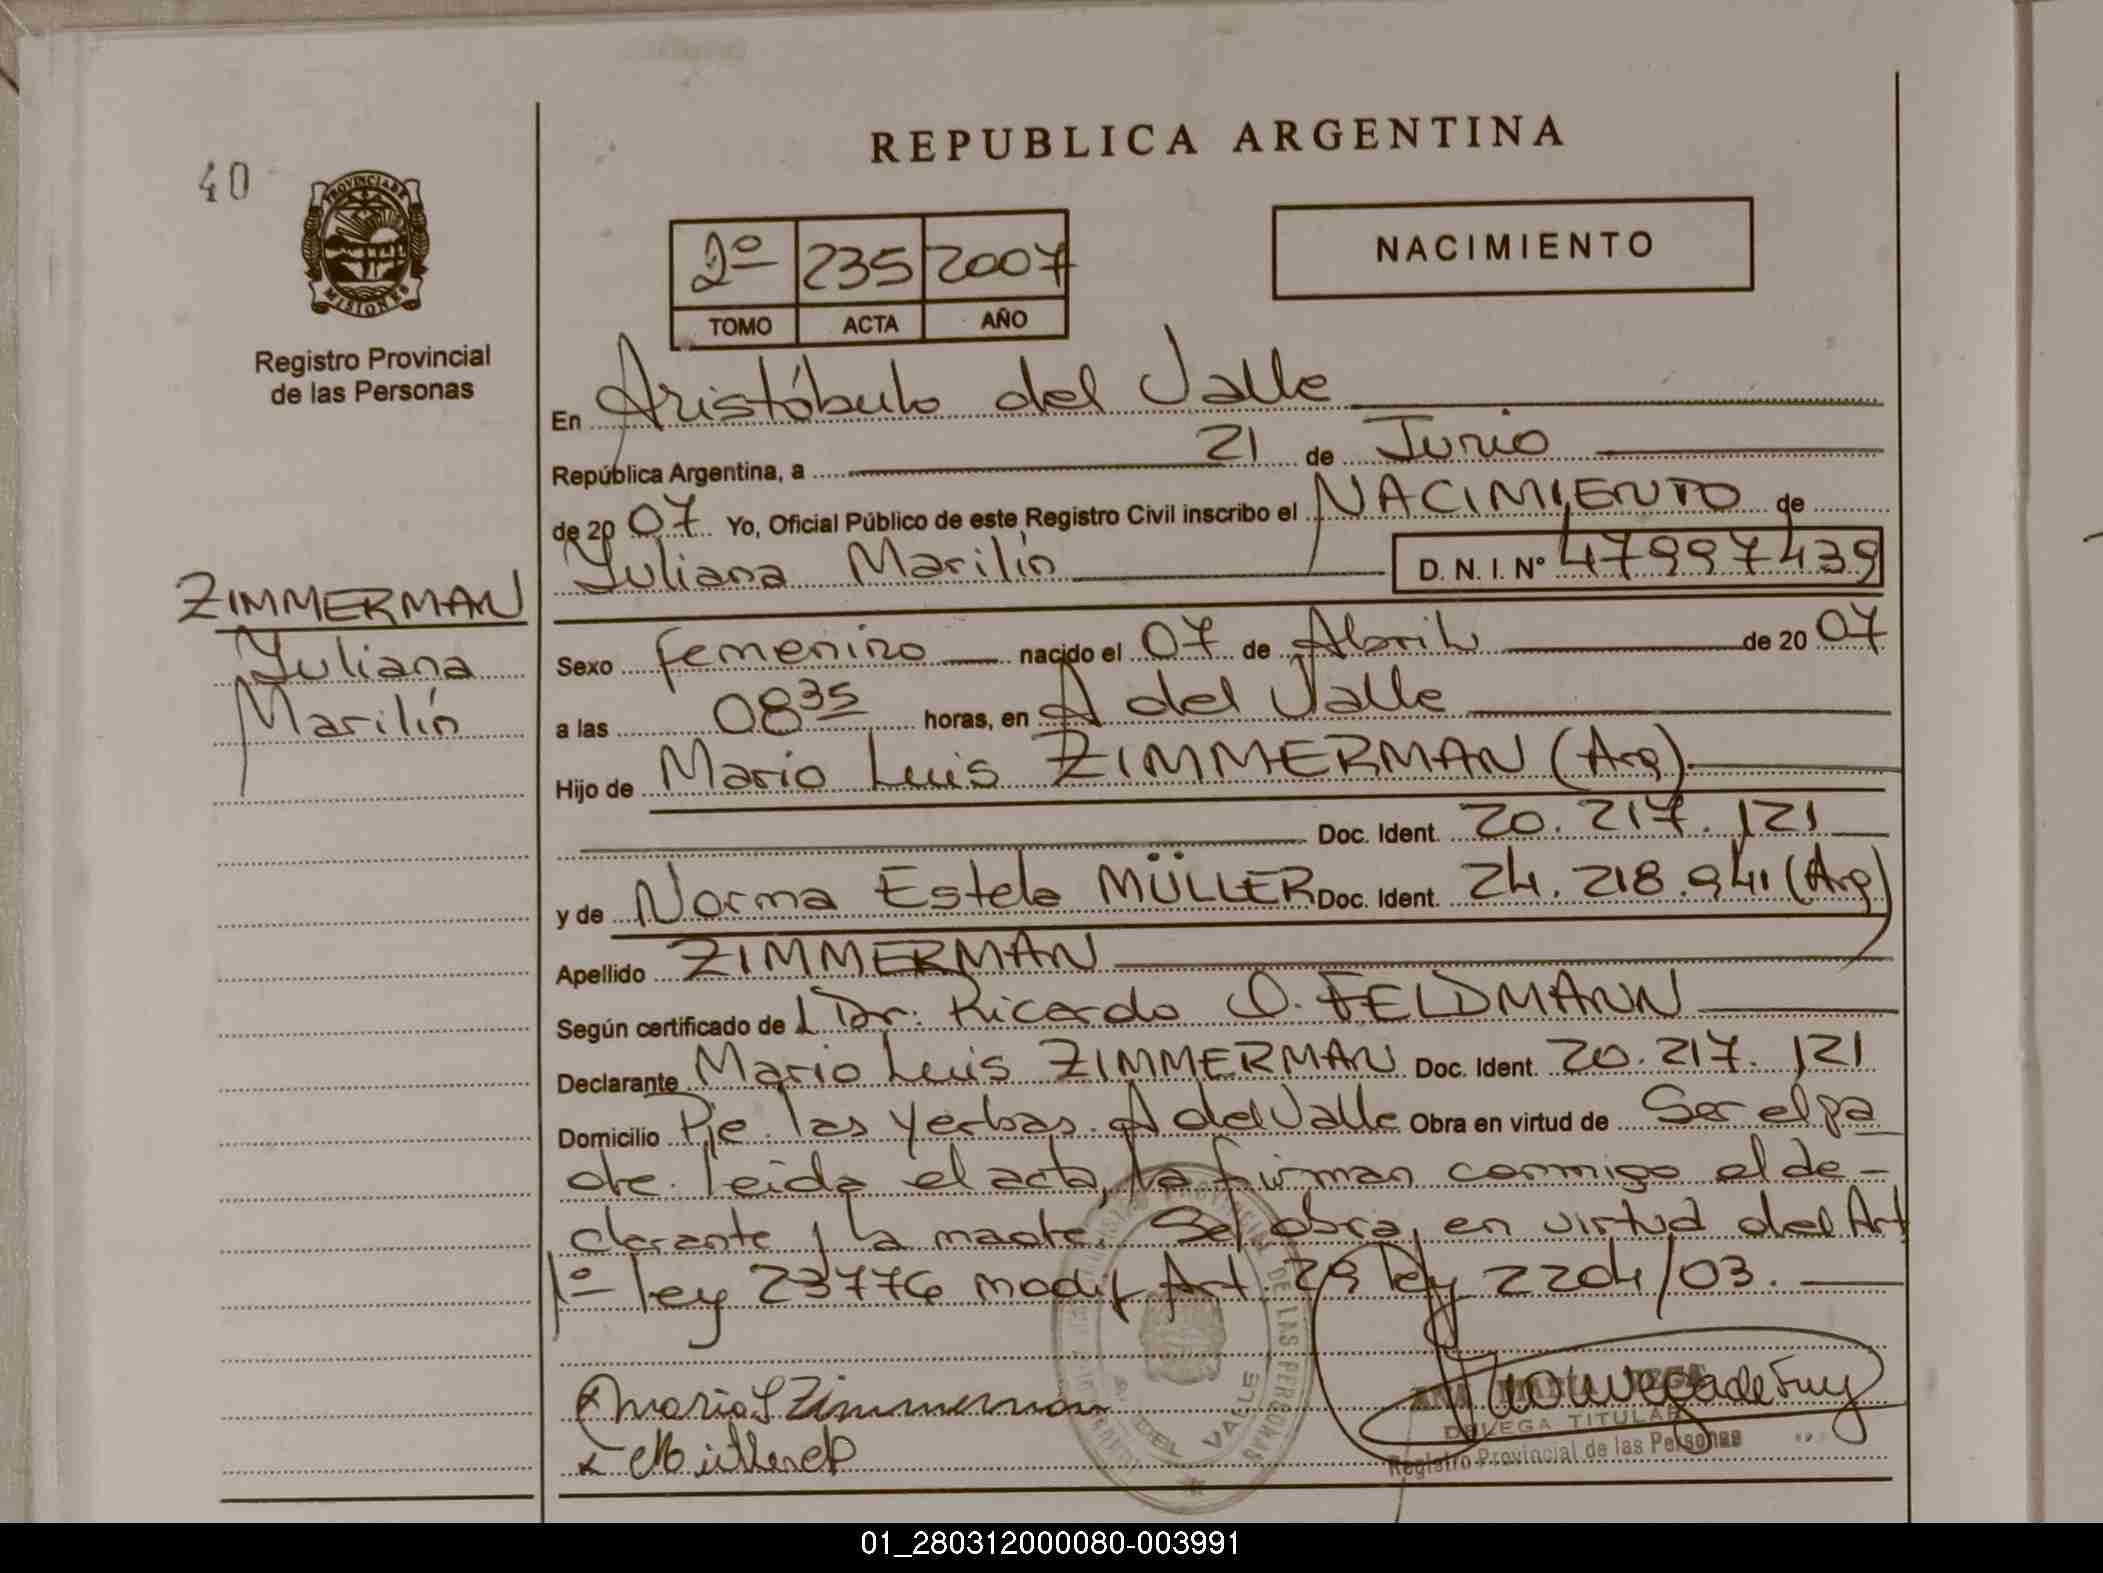 REPUBLICA ARGENTINA
40
PROVINCIA DE
MISIONES
Registro Provincial
de las Personas
2º 235 2007
TOMO ACTA AÑO
NACIMIENTO
En Aristóbulo del Valle
República Argentina, a 21 de Junio
de 2007 Yo, Oficial Público de este Registro Civil inscribo el NACIMIENTO de
Yuliana Marilín D. N. I. Nº 47997439
ZIMMERMAN
Yuliana
Marilín
Sexo femenino nacido el 07 de Abril de 2007
a las 08 35 horas, en A del Valle
Hijo de Mario Luis ZIMMERMAN (Arg)
Doc. Ident. 20.217.121
y de Norma Estela MÜLLER Doc. Ident. 24.218.941 (Arg)
Apellido ZIMMERMAN
Según certificado de Dr. Ricardo O. FELDMANN
Declarante Mario Luis ZIMMERMAN Doc. Ident. 20.217.121
Domicilio Pje. las Yerbas. A del Valle Obra en virtud de Ser el pa
dre. leida el acta, la firman conmigo el de-
clarante y la madre. Se obra, en virtud del Art
1º ley 23776 modif Art. 29 ley 2204/03.
Mario L Zimmerman
DE LAS PERSONAS
A. DEL VALLE
DELEGA TITULAR
Registro Provincial de las Personas
01_280312000080-003991